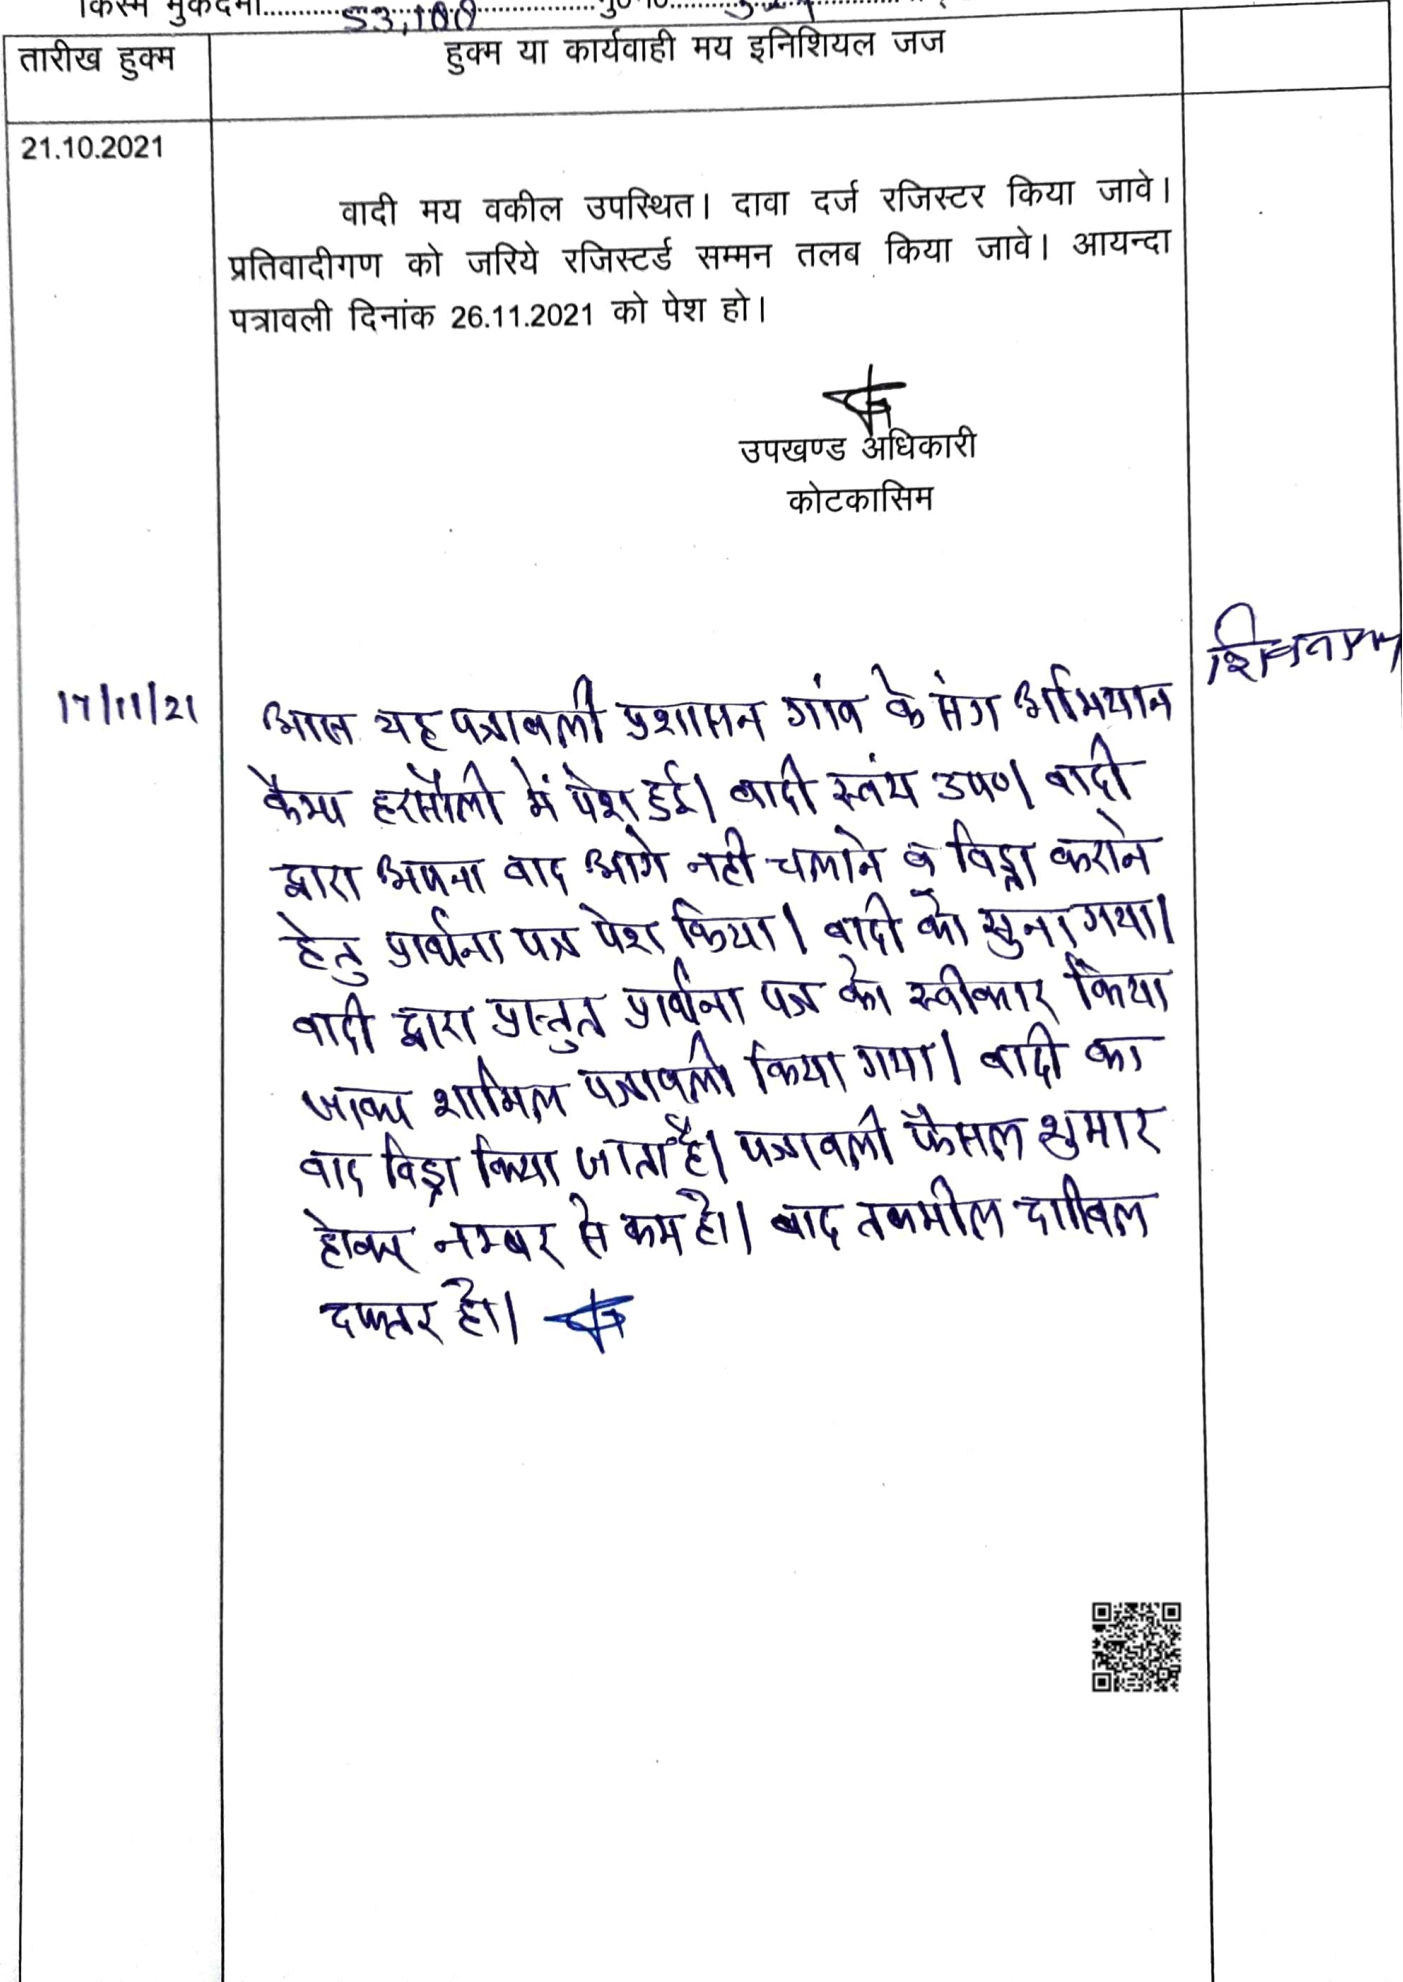 किस्म मुकदमा 53,188 मु0 न0
तारीख हुक्म
हुक्म या कार्यवाही मय इनिशियल जज
21.10.2021
वादी मय वकील उपस्थित। दावा दर्ज रजिस्टर किया जावे।
प्रतिवादीगण को जरिये रजिस्टर्ड सम्मन तलब किया जावे। आयन्दा
पत्रावली दिनांक 26.11.2021 को पेश हो।
उपखण्ड अधिकारी
कोटकासिम
17/11/21
आज यह पत्रावली प्रशासन गांव के संग अभियान
कैम्प हरसौली में पेश हुई। वादी स्वंय उप०। वादी
द्वारा अपना वाद आगे नही चलाने व विड्रा कराने
हेतु प्रार्थना पत्र पेश किया। वादी को सुना गया।
वादी द्वारा प्रस्तुत प्रार्थना पत्र को स्वीकार किया
जाकर शामिल पत्रावली किया गया। वादी का
वाद विड्रा किया जाता है। पत्रावली फैसल शुमार
होकर नम्बर से कम हो। बाद तकमील दाखिल
दफ्तर हो।